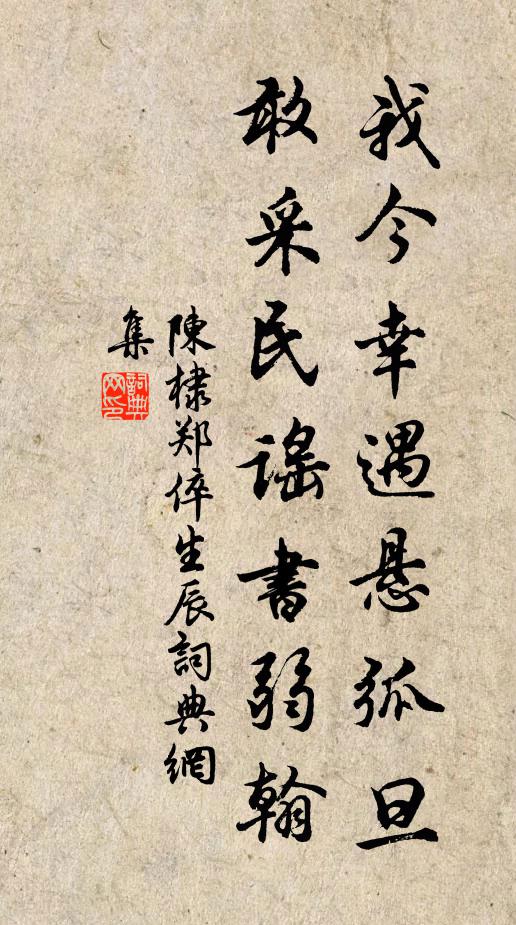 我今幸遇悬弧旦
敢采民謡書弱翰
陳棣郑倅生辰詞典網
集
詞典网印